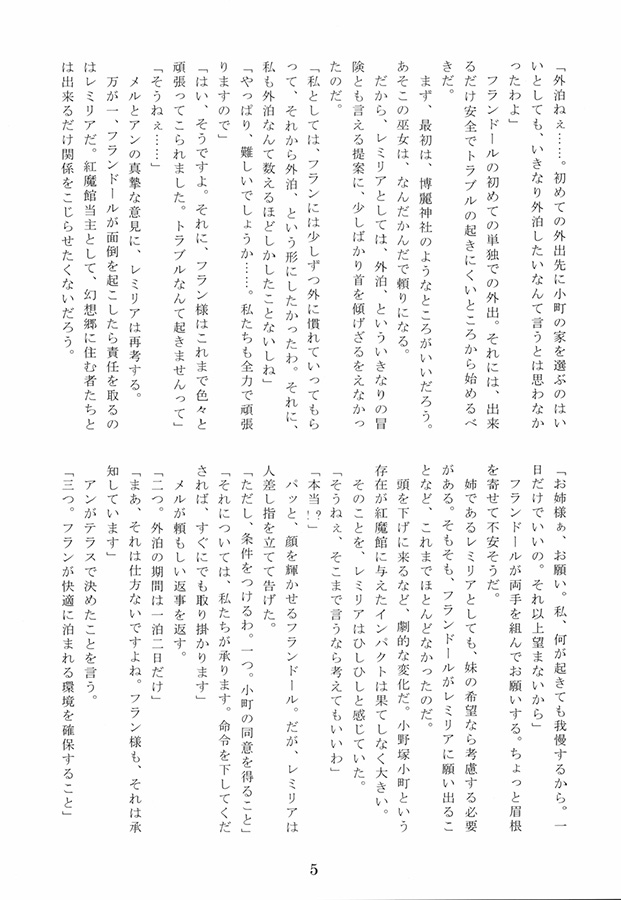 「外泊ねぇ……。初めての外出先に小町の家を選ぶのはい
いとしても、いきなり外泊したいなんて言うとは思わなか
ったわよ」
フランドールの初めての単独での外出。それには、出来
るだけ安全でトラブルの起きにくいところから始めるべ
きだ。
まず、最初は、博麗神社のようなところがいいだろう。
あそこの巫女は、なんだかんだで頼りになる。
だから、レミリアとしては、外泊、といういきなりの冒
険とも言える提案に、少しばかり首を傾げざるをえなかっ
たのだ。
「私としては、フランには少しずつ外に慣れていってもら
って、それから外泊、という形にしたかったわ。それに、
私も外泊なんて数えるほどしかしたことないしね」
「やっぱり、難しいでしょうか……。私たちも全力で頑張
りますので」
「はい、そうですよ。それに、フラン様はこれまで色々と
頑張ってこられました。トラブルなんて起きませんって」
「そうねぇ……」
メルとアンの真摯な意見に、レミリアは再考する。
万が一、フランドールが面倒を起こしたら責任を取るの
はレミリアだ。紅魔館当主として、幻想郷に住む者たちと
は出来るだけ関係をこじらせたくないだろう。
「お姉様ぁ、お願い。私、何が起きても我慢するから。一
日だけでいいの。それ以上望まないから」
フランドールが両手を組んでお願いする。ちょっと眉根
を寄せて不安そうだ。
姉であるレミリアとしても、妹の希望なら考慮する必要
がある。そもそも、フランドールがレミリアに願い出るこ
となど、これまでほとんどなかったのだ。
頭を下げに来るなど、劇的な変化だ。小野塚小町という
存在が紅魔館に与えたインパクトは果てしなく大きい。
そのことを、レミリアはひしひしと感じていた。
「そうねぇ、そこまで言うなら考えてもいいわ」
「本当？！」
パッと、顔を輝かせるフランドール。だが、レミリアは
人差し指を立てて告げた。
「ただし、条件をつけるわ。一つ。小町の同意を得ること」
「それについては、私たちが承ります。命令を下してくだ
されば、すぐにでも取り掛かります」
メルが頼もしい返事を返す。
「二つ。外泊の期間は一泊二日だけ」
「まあ、それは仕方ないですよね。フラン様も、それは承
知しています」
アンがテラスで決めたことを言う。
「三つ。フランが快適に泊まれる環境を確保すること」
5